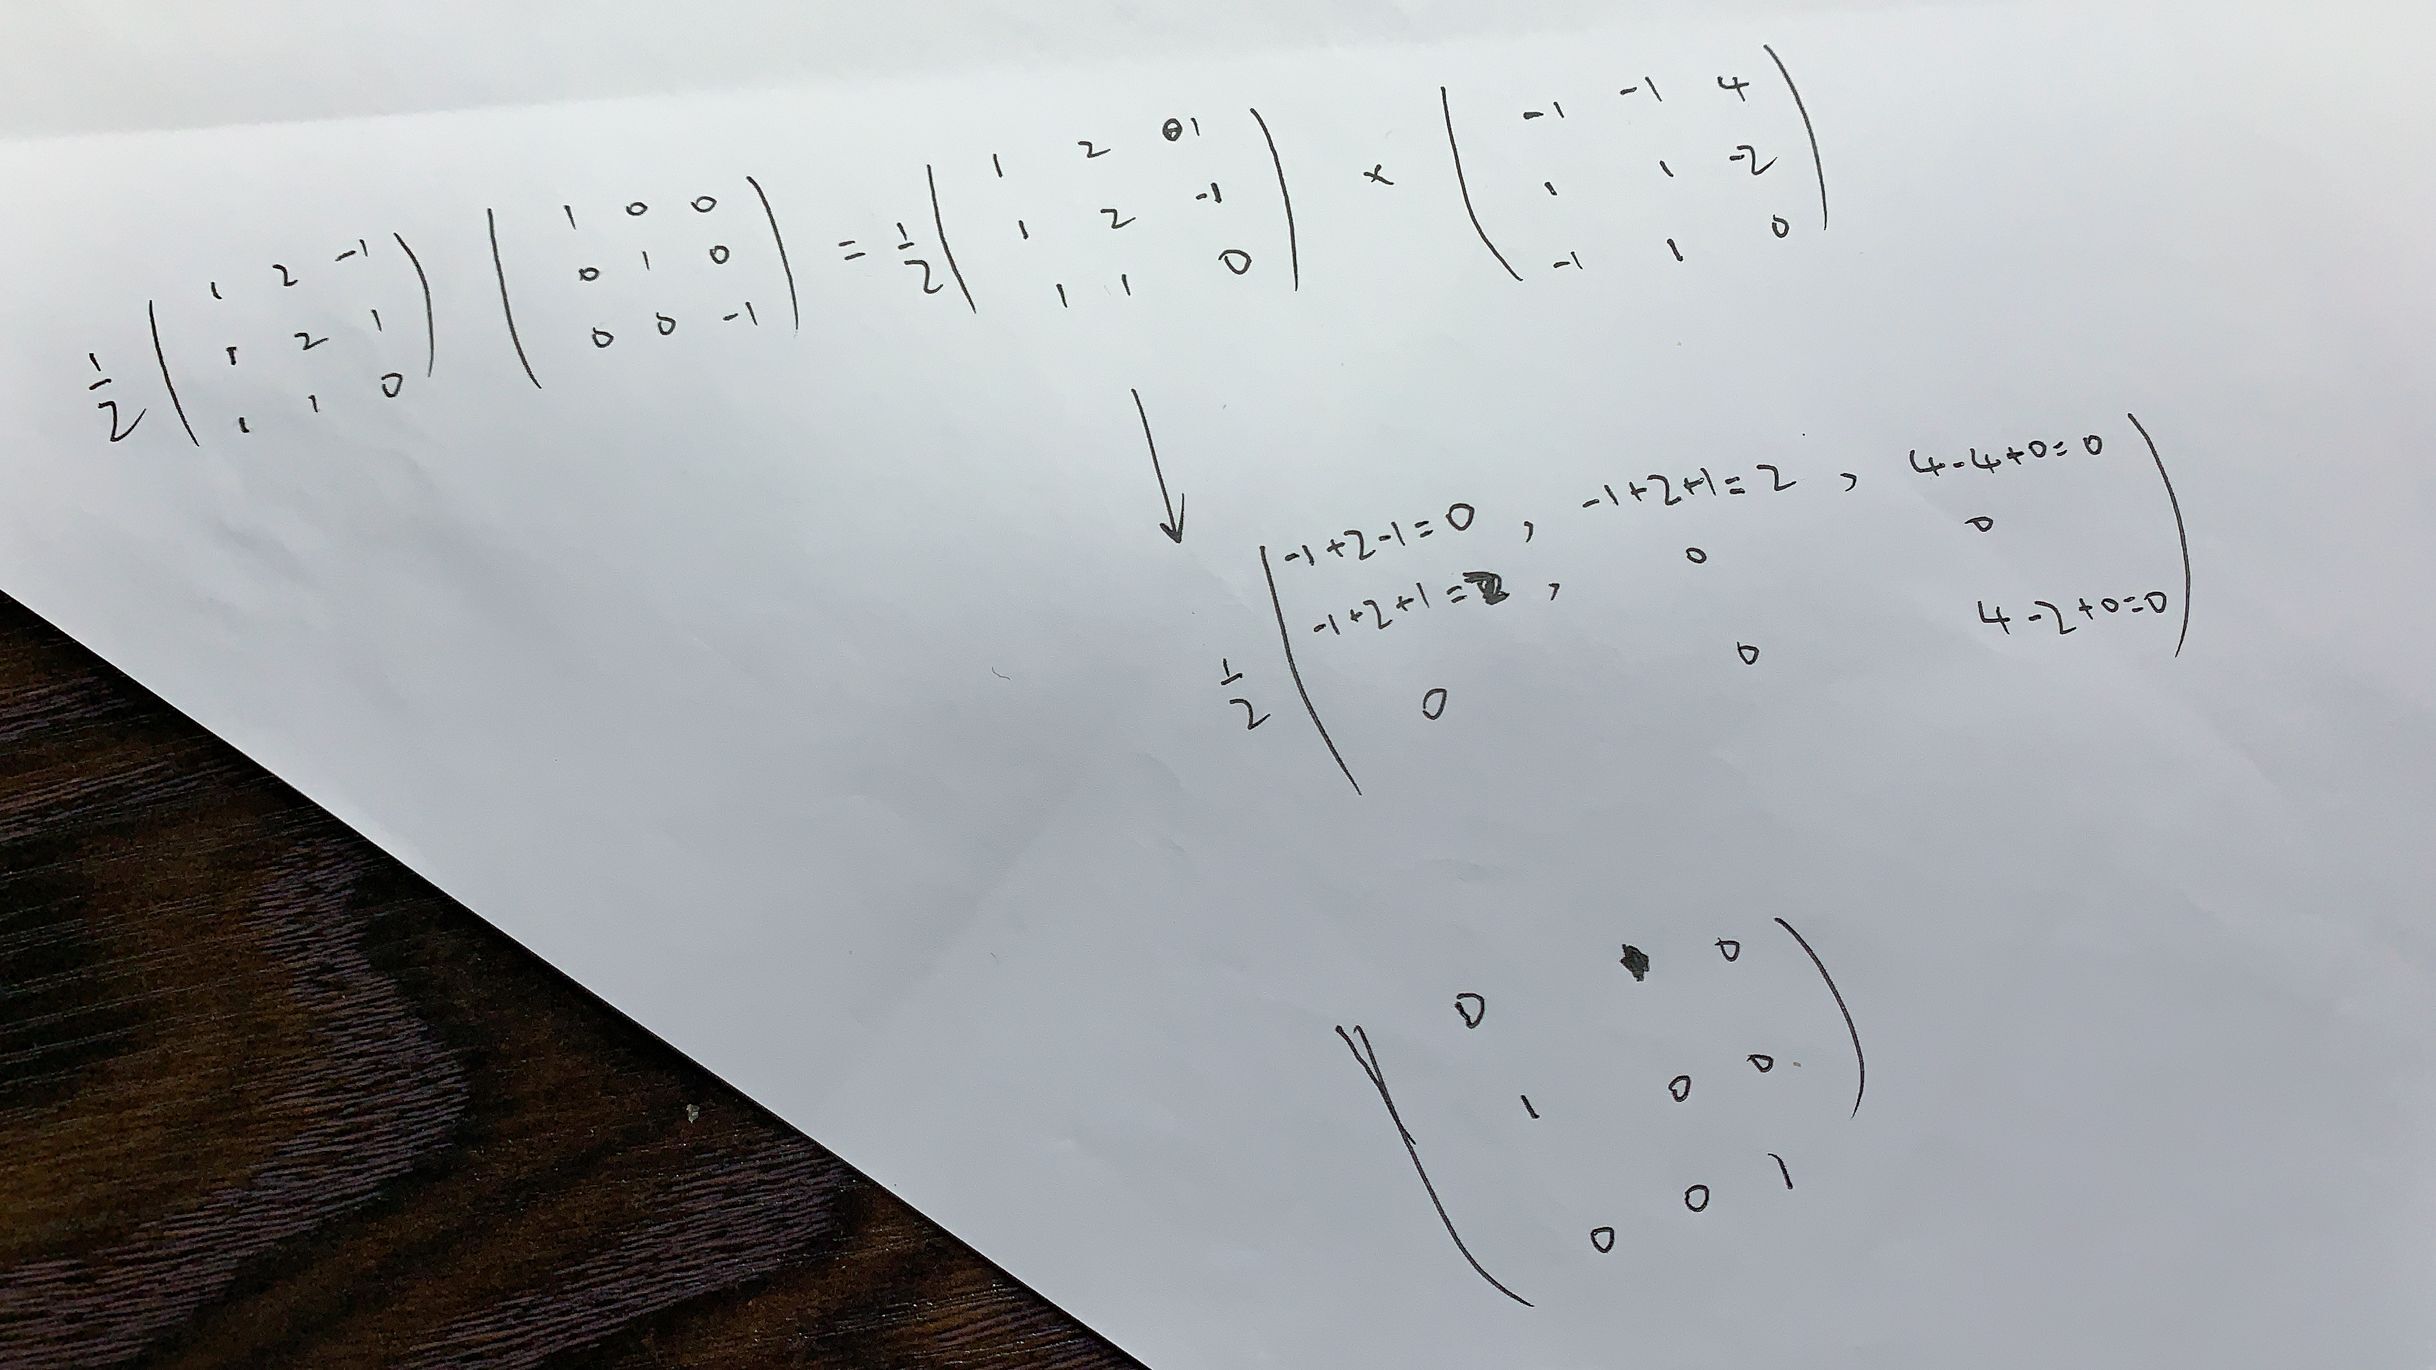 1/2 ( 1 2 -1 ; 1 2 1 ; 1 1 0 ) ( 1 0 0 ; 0 1 0 ; 0 0 -1 ) = 1/2 ( 1 2 1 ; 1 2 -1 ; 1 1 0 ) × ( -1 -1 4 ; 1 1 -2 ; -1 1 0 )
↓
1/2 ( -1+2-1=0 , -1+2+1=2 , 4-4+0=0
-1+2+1=2 , 0 0
0 0 4-2+0=0 )
( 0 0
1 0 0
0 0 1 )